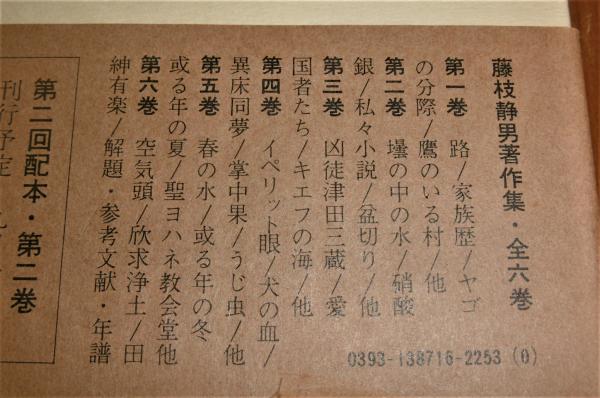 藤枝静男著作集・全六巻
第一巻 路/家族歴/ヤゴ
の分際/鷹のいる村/他
第二巻 壜の中の水/硝酸
銀/私々小説/盆切り/他
第三巻 凶徒津田三蔵/愛
国者たち/キエフの海/他
第四巻 イペリット眼/犬の血/
異床同夢/掌中果/うじ虫/他
第五巻 春の水/或る年の冬
或る年の夏/聖ヨハネ教会堂他
第六巻 空気頭/欣求浄土/田
紳有楽/解題・参考文献・年譜
0393-138716-2253 (0)
第二回配本・第二巻
刊行予定